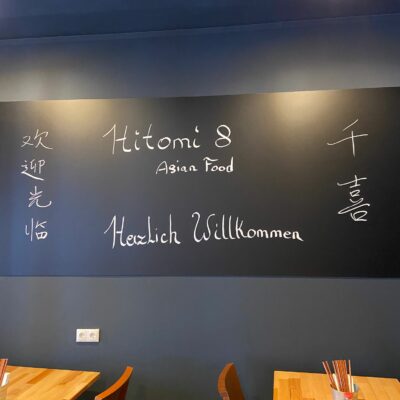 欢迎光临
Hitomi 8
Asian Food
Herzlich Willkommen
千喜